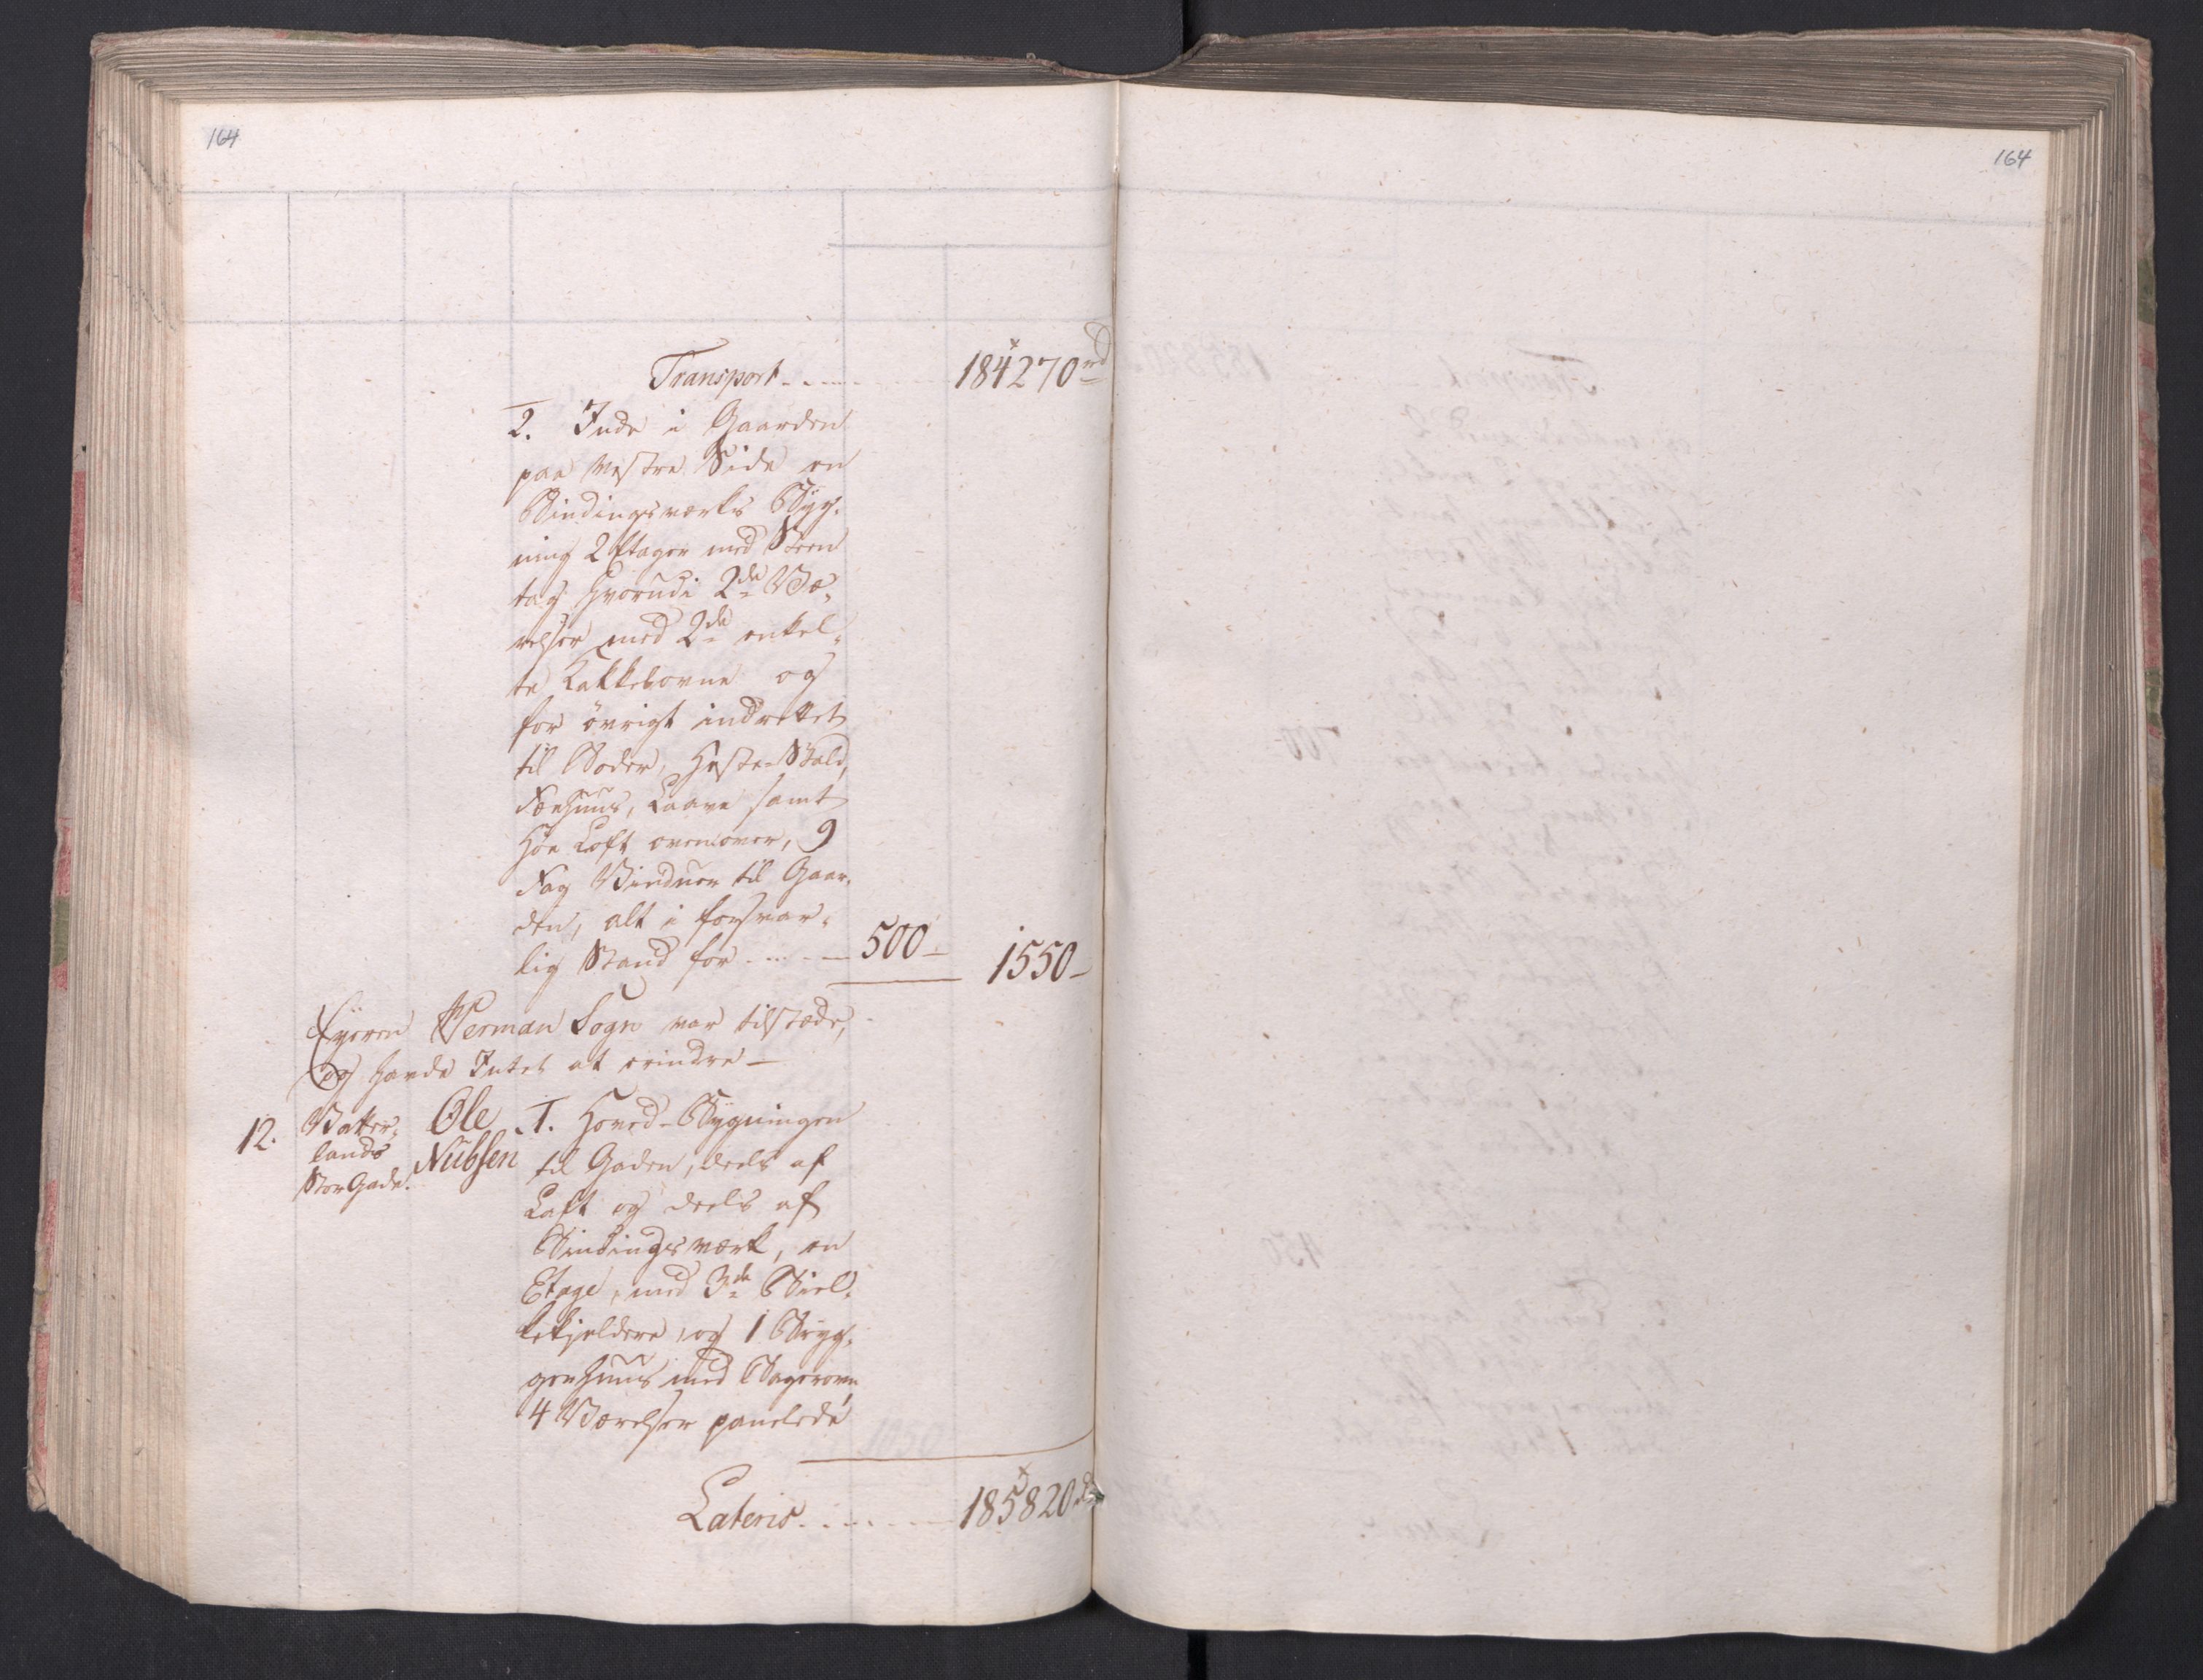 164
164
Transport - - - - - 184270 rd
2. Inde i Gaarden
paa Vestre Side en
Bindingsverks Byg-
ning 2 Etager med Steen
tag hvorudi 2de Væ-
relser med 2de enkel-
te Kakkelovne og
for øvrigt indrettet
til Boder, Heste Stald,
Fæehuus, Laave samt
Høe Loft ovenover, 9
Fag Vinduer til Gaar-
den, alt i forsvar-
lig Stand for - - - - 500 - 1550 -
Eyeren Herman Sogn var tilstæde,
og havde Intet at erindre -
12. Vatter-
lands
Stor Gade.
Ole
Nubsen
1. Hoved-Bygningen
til Gaden, deels af
Laft og deels af
Bindingsværk, en
Etage, med 3de Biel-
kekieldere, og 1 Bryg-
gerhuus med Bagerovn
4 Værelser panelede
Lateris - - - - - 185820 rd